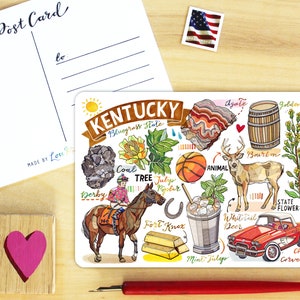 Post Card
to
MADE BY
KENTUCKY
Bluegrass State
Agate
Coal
TREE
Tulip
Poplar
ANIMAL
Bourbon
Derby
STATE
FLOWER
Fort Knox
White Tail
Deer
Mint Julep